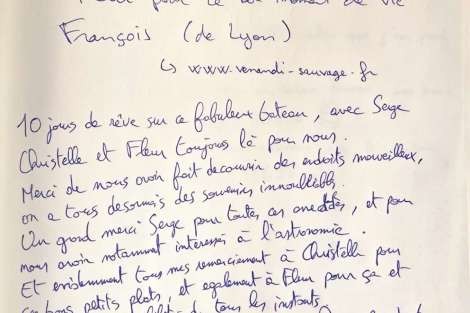 pour ce bon moment de vie
François (de Lyon)
↳ www.venandi-sauvage.fr
10 jours de rêve sur ce fabuleux bateau, avec Serge
Christelle et Fleur toujours là pour nous.
Merci de nous avoir fait découvrir des endroits merveilleux,
on a tous désormais des souvenirs innoubliables
Un grand merci Serge pour toutes ces anecdotes, et pour
nous avoir notamment intéressés à l'astronomie.
Et évidemment tous mes remerciement à Christelle pour
ces bons petits plats, et également à Fleur pour ça et
de tous les instants.